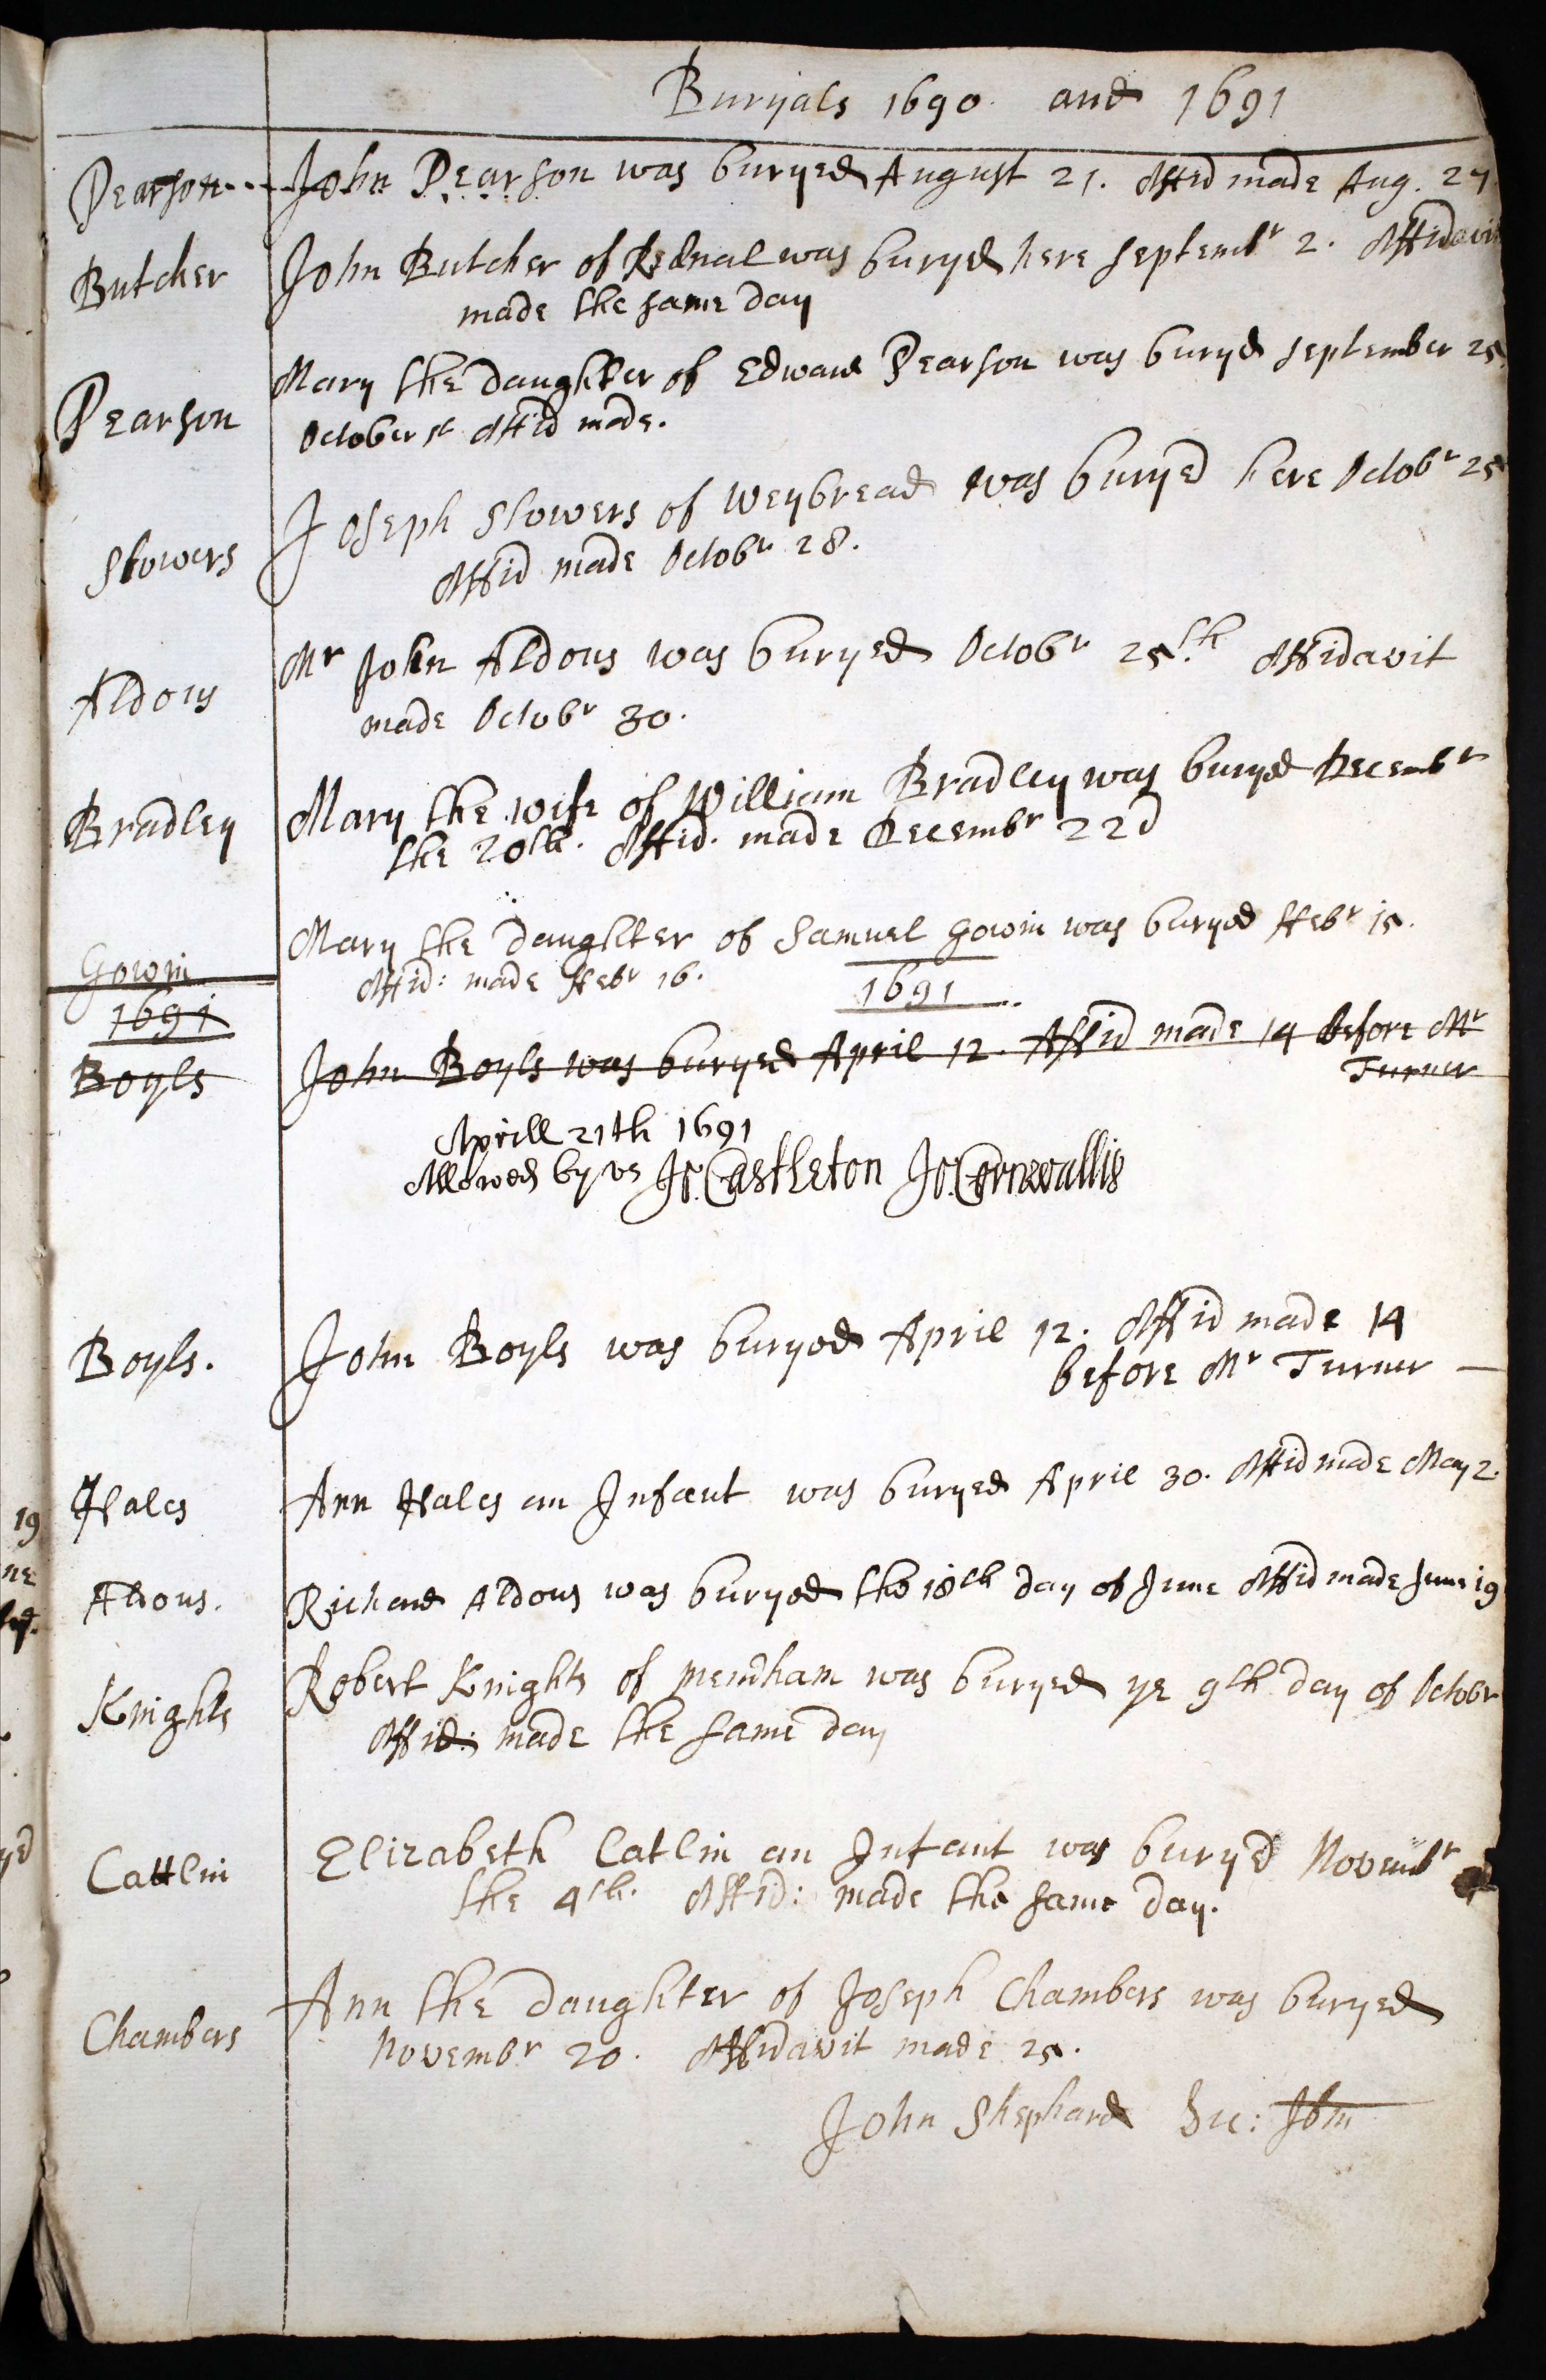 Buryals 1690 and 1691
Pearson John Pearson was buryed August 21. Affid made Aug. 27
Butcher John Butcher of Rednal was buryed here Septembr 2. Affidavit
made the same day
Mary the daughter of Edward Pearson was buryd September 25
Pearson October 1st Affid made.
Joseph Stowers of Weybread was buryed here Octobr 25
Stowers Affid made Octobr 28.
Mr John Aldous was buryed Octobr 25th Affidavit
Aldous made Octobr 30.
Mary the wife of William Bradley was buryed Decembr
Bradley the 20th. Affid. made Decembr 22d
Mary the daughter of Samuel Gowin was buryed ffebr 15.
Gowin Affid: made ffebr 16.
1691 1691
Boyls John Boyls was buryed April 12. Affid made 14 before Mr
Turner
Aprill 21th 1691
Allowed by us Jo. Castleton Jo. Cornwallis
Boyls. John Boyls was buryed April 12. Affid made 14
before Mr Turner
Hales Ann Hales an Infant was buryed April 30. Affid made May 2.
Aldous. Richard Aldous was buryed the 18th day of June Affid made June 19
Knights Robert Knights of Mendham was buryed ye 9th day of Octobr
Affid: made the same day
Cattlin Elizabeth Catlin an Infant was buryed Novembr
the 4th. Affid: made the same day.
Ann the daughter of Joseph Chambers was buryed
Chambers Novembr 20. Affidavit made 25.
John Shephard Vic: Ibm